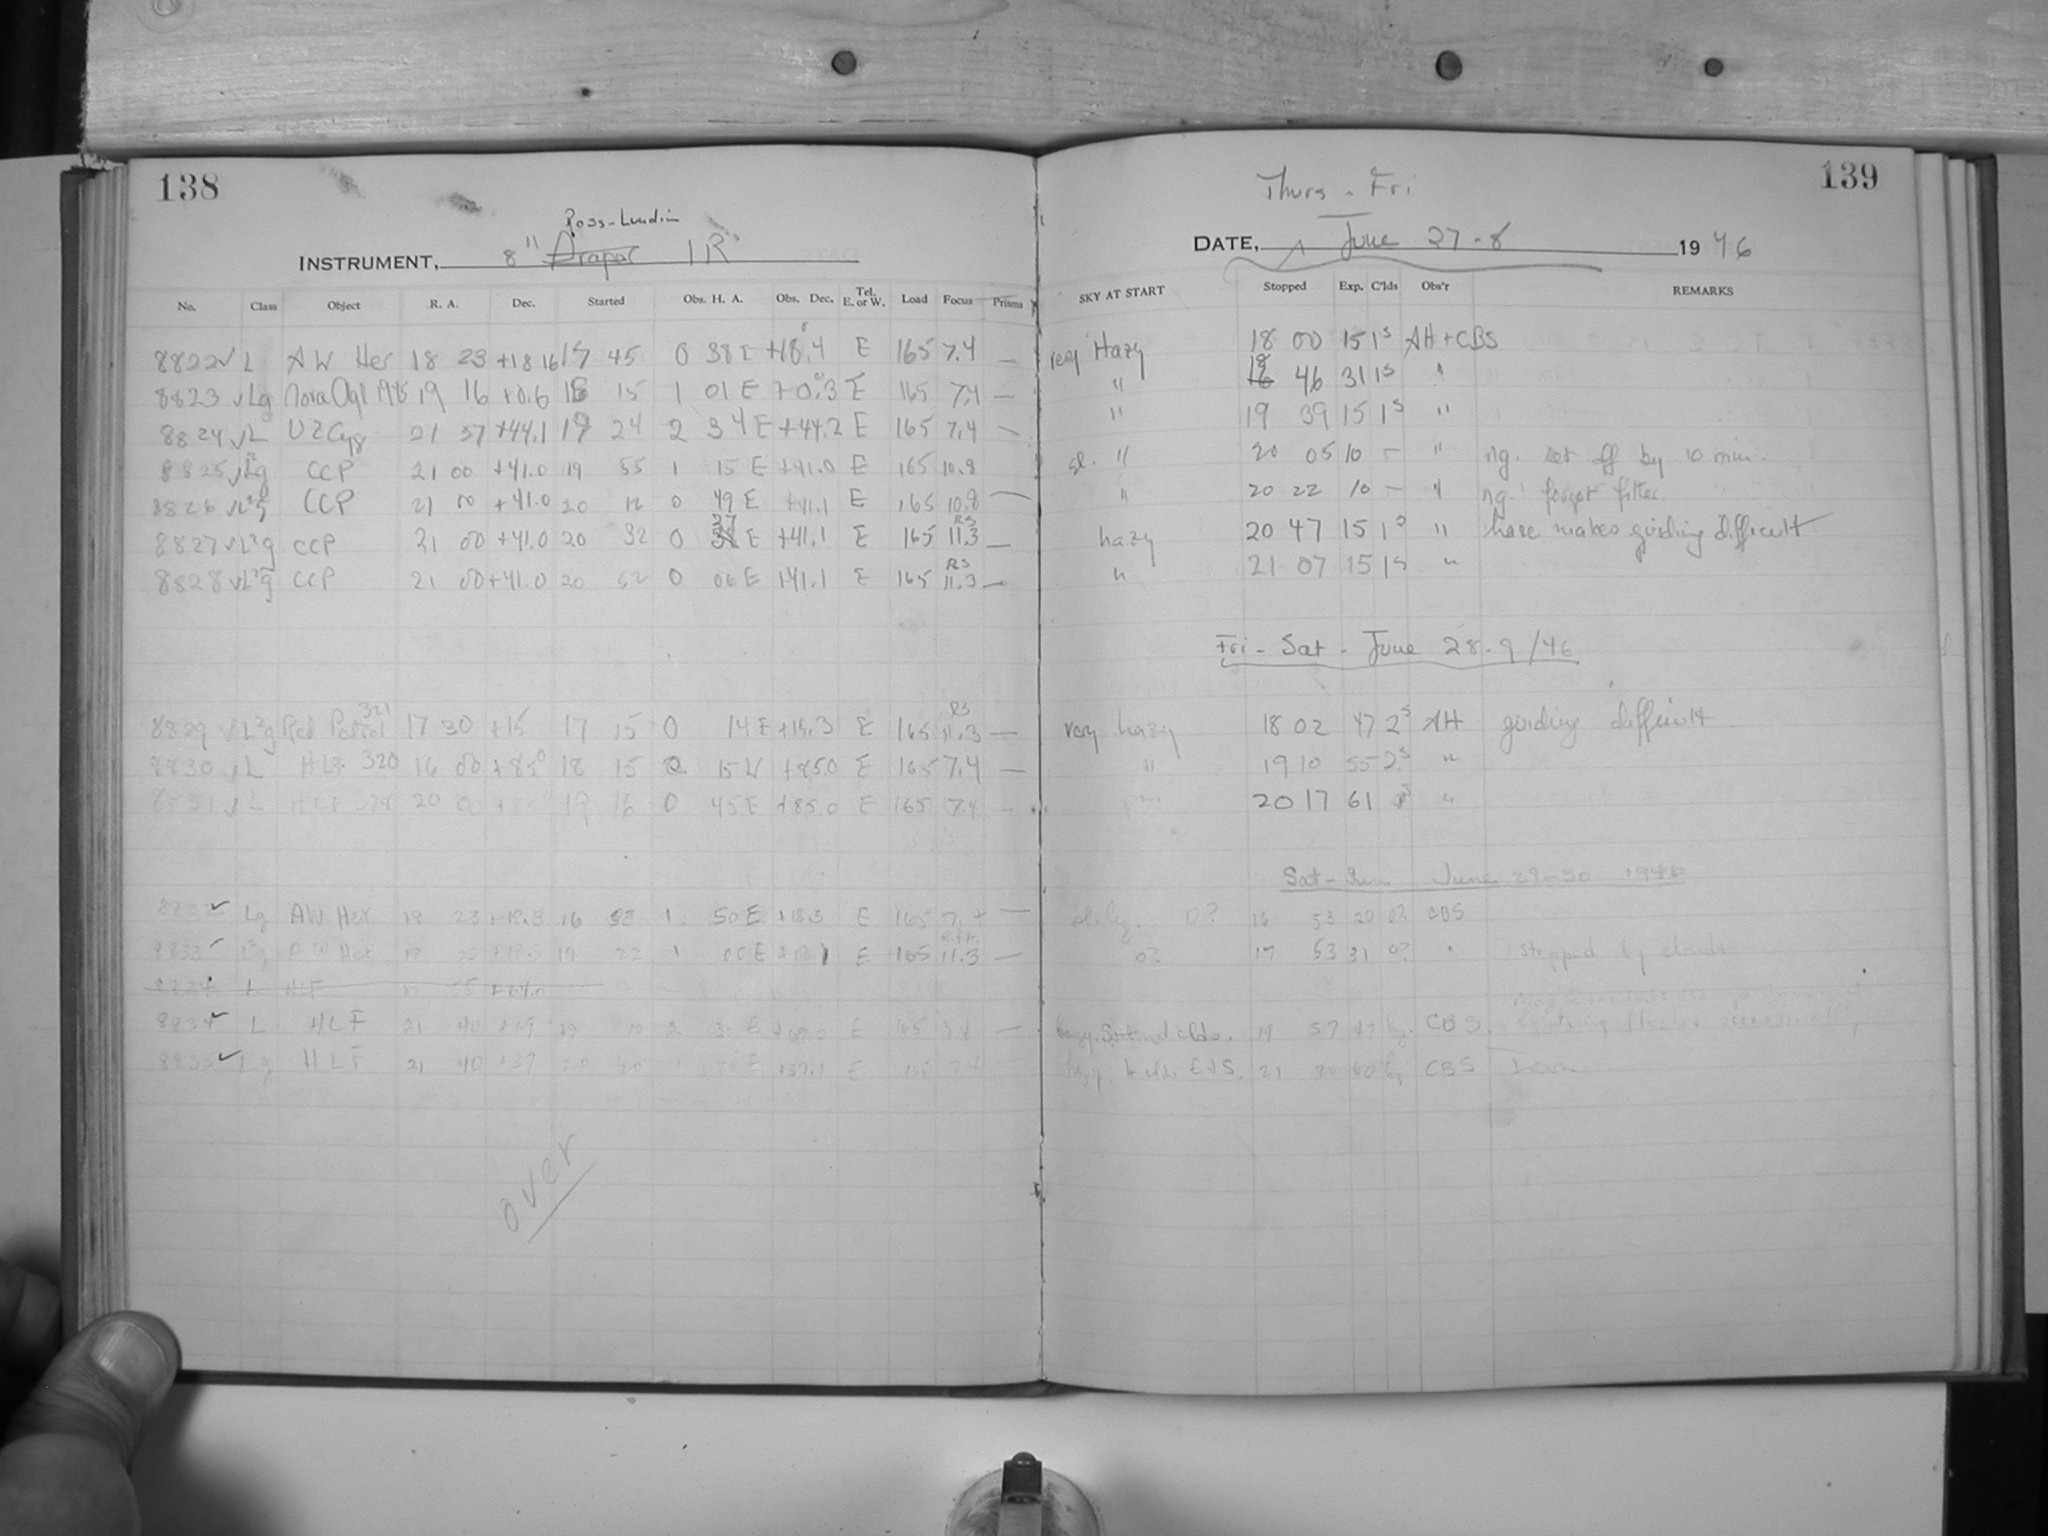 138
Ross-Lundin
INSTRUMENT, 8" Draper IR
No. Class Object R. A. Dec. Started Obs. H. A. Obs. Dec. Tel. E. or W. Load Focus Prisms
8822 √ L AW Her 18 23 +18 16 17 45 0 38 E +18.4 E 165 7.4 —
8823 √ Lg Nova Aql 1945 19 16 +0.6 18 15 1 01 E +0.3 E 165 7.4 —
8824 √ L UZ Cyg 21 57 +44.1 19 24 2 34 E +44.2 E 165 7.4 —
8825 √ CCP 21 00 +41.0 19 55 1 15 E +41.0 E 165 10.8
8826 √ CCP 21 00 +41.0 20 12 0 49 E +41.1 E 165 10.8 —
8827 √ L²g CCP 21 00 +41.0 20 32 0 37 E +41.1 E 165 RS 11.3 —
8828 √ L²g CCP 21 00 +41.0 20 52 0 06 E +41.1 E 165 RS 11.3 —
8829 √ L²g Red Patrol 321 17 30 +15 17 15 0 14 E +15.3 E 165 RS 11.3 —
8830 √ L HLF 320 16 00 +85° 18 15 0 15 W +85.0 E 165 7.4 —
8831 √ L HLF 328 20 00 +85° 19 16 0 45 E +85.0 E 165 7.4 —
8832 √ Lg AW Her 18 23 +18.3 16 33 1 50 E +18.3 E 165 7.4 —
8833 √ AW Her 18 23 +18.3 E 165 11.3 —
L HLF
8834 √ L HLF 21 40 E E 165 7.4 —
8835 √ Lg HLF 21 40 +37 E +37.1 E 165 7.4
over
139
Thurs - Fri
DATE, June 27-8 1946
SKY AT START Stopped Exp. C'lds Obs'r REMARKS
very Hazy 18 00 15 1s AH+CBS
" 18 46 31 1s "
" 19 39 15 1s "
sl. " 20 05 10 - " ng. set off by 10 min.
" 20 22 10 - " ng. forgot filter
hazy 20 47 15 1s " haze makes guiding difficult
" 21 07 15 1s "
Fri - Sat - June 28-9 /46
very hazy 18 02 47 2s AH guiding difficult
" 19 10 55 2s "
" 20 17 61 "
Sat-Sun June 29-30 1946
0? 16 53 20 0? CBS
0? 17 53 31 0? " Stopped by clouds
19 57 47 CBS.
21 60 CBS Dawn